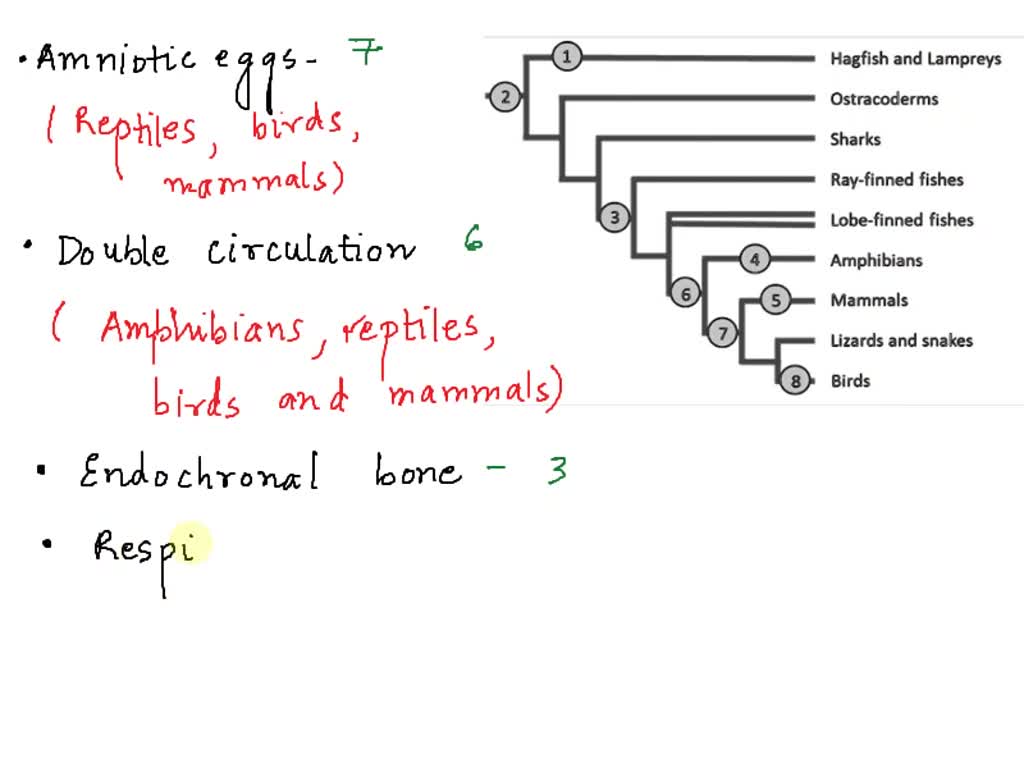 • Amniotic eggs - 7
( Reptiles, birds,
mammals)
• Double circulation 6
( Amphibians, reptiles,
birds and mammals)
• Endochronal bone - 3
• Respi
1
Hagfish and Lampreys
2
Ostracoderms
Sharks
Ray-finned fishes
3
Lobe-finned fishes
4
Amphibians
6
5
Mammals
7
Lizards and snakes
8
Birds